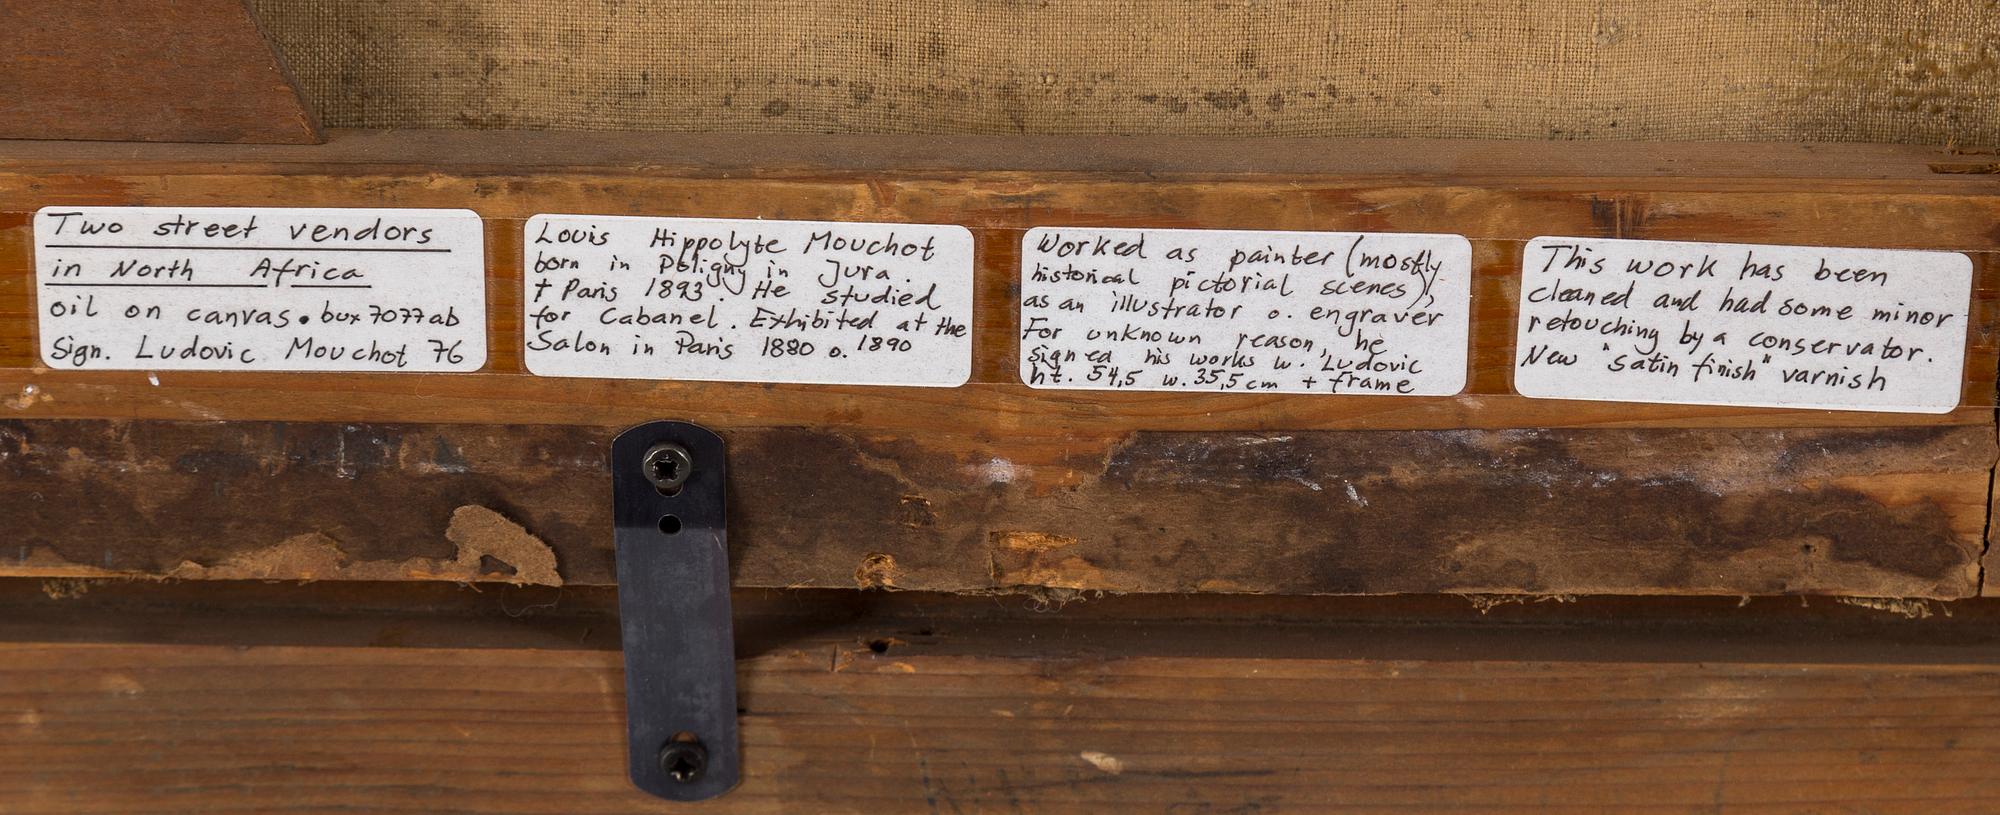 Two street vendors
in North Africa
oil on canvas • bux 7077ab
Sign. Ludovic Mouchot 76
Louis Hippolyte Mouchot
born in Poligny in Jura.
† Paris 1893. He studied
for Cabanel. Exhibited at the
Salon in Paris 1880 o. 1890
Worked as painter (mostly
historical pictorial scenes),
as an illustrator o. engraver
For unknown reason, he
signed his works w. Ludovic
ht. 54,5 w. 35,5 cm + frame
This work has been
cleaned and had some minor
retouching by a conservator.
New "satin finish" varnish